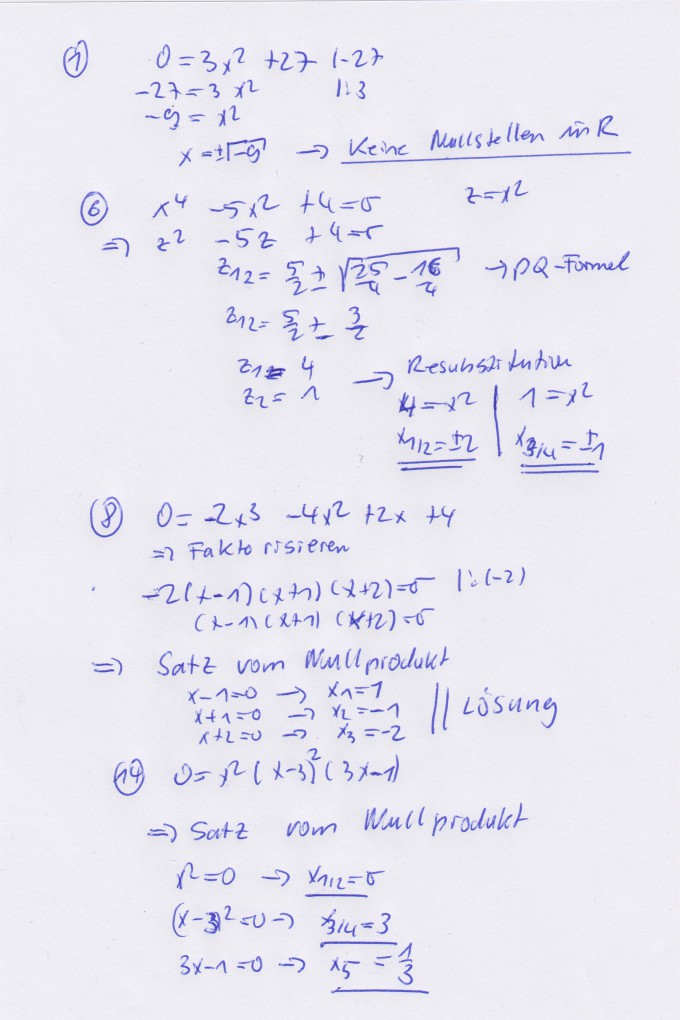 ① 0 = 3x² + 27 |-27
-27 = 3x² |:3
-9 = x²
x = ±√-9 → Keine Nullstellen in R
⑥ x⁴ - 5x² + 4 = 0 z = x²
⇒ z² - 5z + 4 = 0
z12 = 5/2 ± √(25/4 - 16/4) → PQ-Formel
z12 = 5/2 ± 3/2
z1 = 4 → Resubstitution
z2 = 1
4 = x² | 1 = x²
x1/2 = ±2 | x3/4 = ±1
⑧ 0 = -2x³ - 4x² + 2x + 4
⇒ Faktorisieren
-2(x-1)(x+1)(x+2) = 0 |:(-2)
(x-1)(x+1)(x+2) = 0
⇒ Satz vom Nullprodukt
x-1=0 → x1=1
x+1=0 → x2=-1 || Lösung
x+2=0 → x3=-2
⑭ 0 = x²(x-3)²(3x-1)
⇒ Satz vom Nullprodukt
x²=0 → x1/2=0
(x-3)²=0 → x3/4=3
3x-1=0 → x5 = 1/3